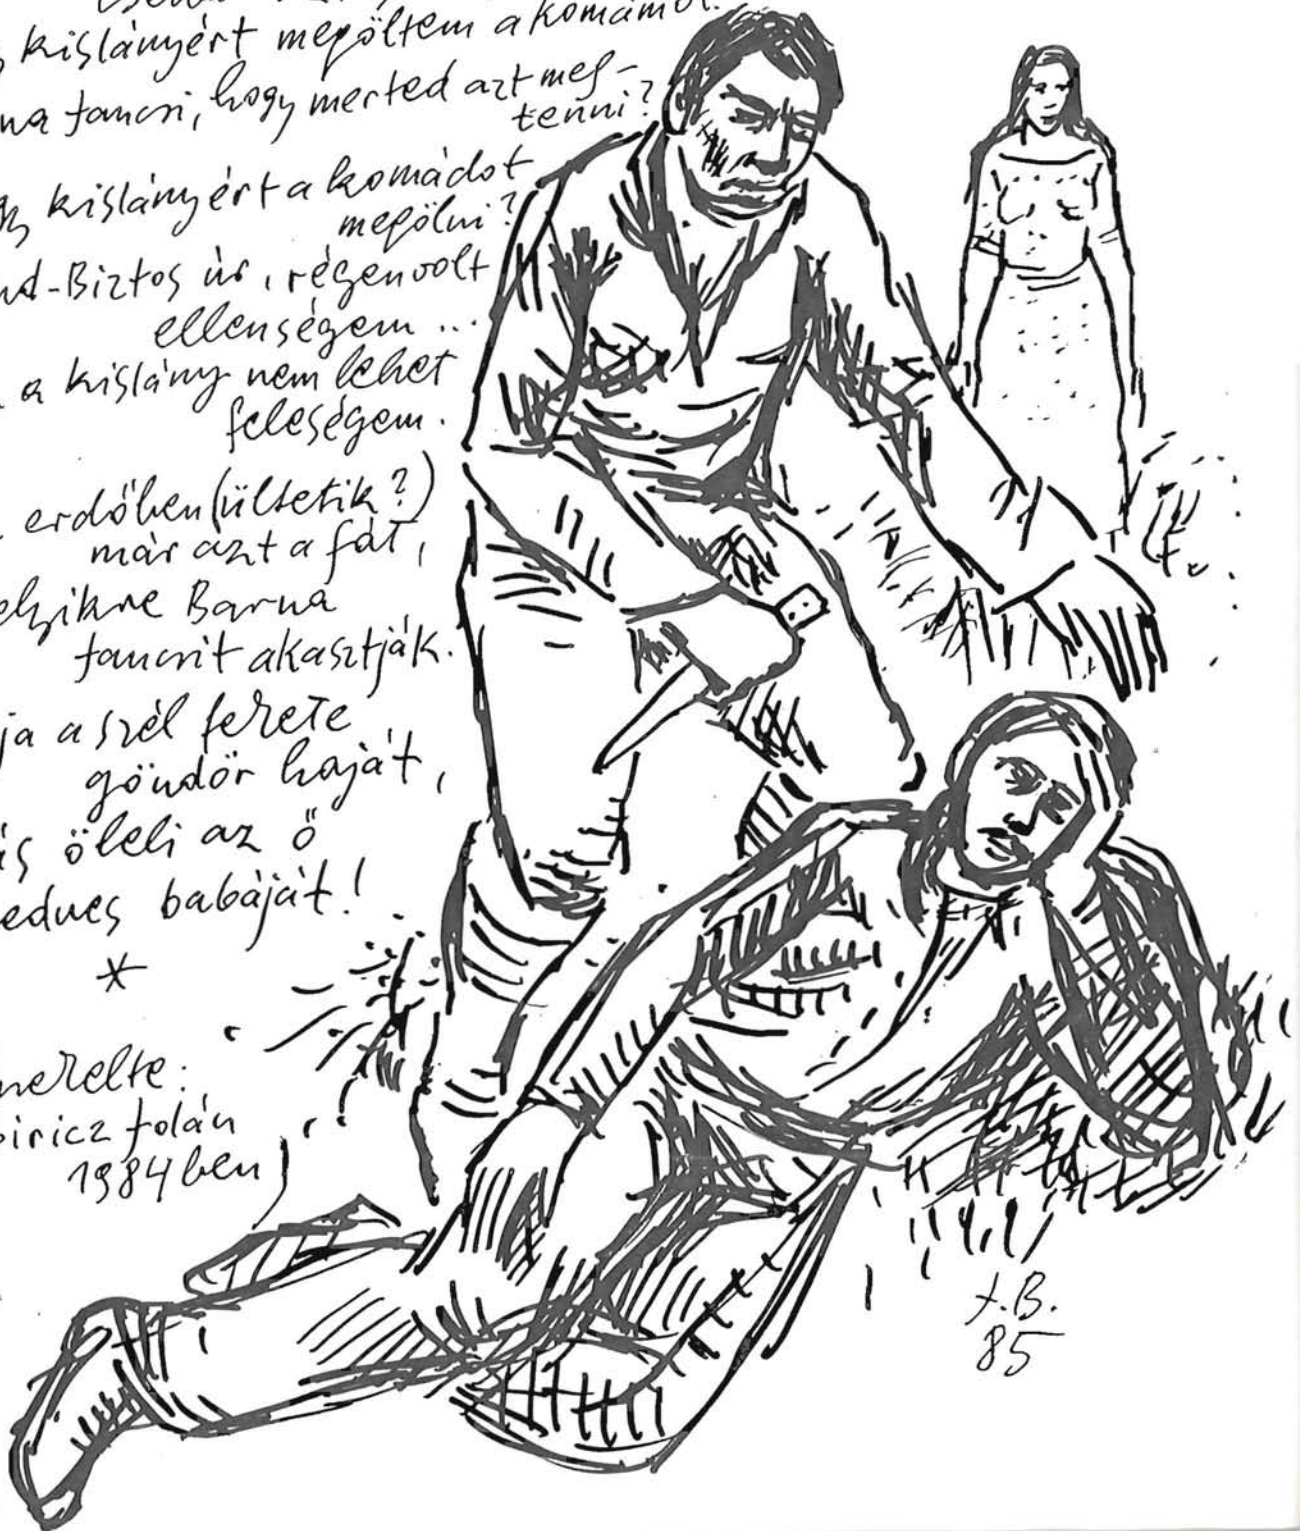 kislányért megöltem a komámot.
na Jancsi, hogy merted azt meg-
tenni?
kislányért a komádot
megölni?
nd-Biztos úr, régen volt
ellenségem...
a kislány nem lehet
feleségem.
erdőben (ültetik?)
már azt a fát,
elyikre Barna
Jancsit akasztják.
ja a szél fekete
göndör haját,
ás öleli az ő
edves babáját!
*
merelte:
piricz Jolán
1984 ben
J.B.
85